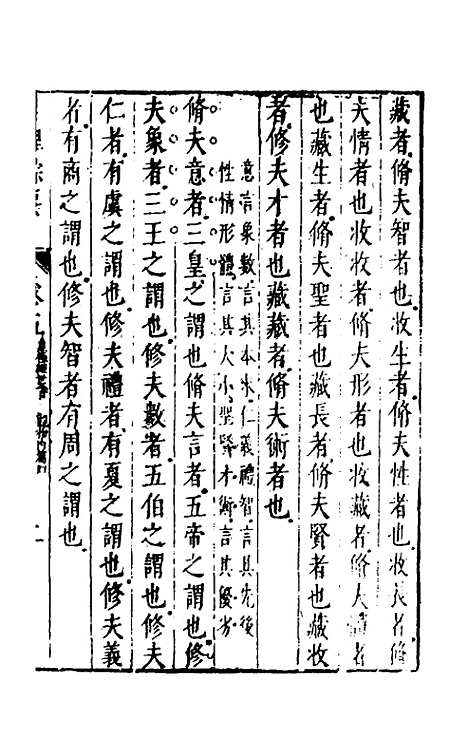 藏者脩夫智者也收生者脩夫性者也收長者脩
夫情者也收收者脩夫形者也收藏者脩夫體者
也藏生者脩夫聖者也藏長者脩夫賢者也藏收
者修夫才者也藏藏者脩夫術者也
意言象數言其本末仁義禮智言其先後
性情形體言其大小聖賢才術言其優劣
脩夫意者三皇之謂也脩夫言者五帝之謂也修
夫象者三王之謂也修夫數者五伯之謂也修夫
仁者有虞之謂也修夫禮者有夏之謂也修夫義
者有商之謂也修夫智者有周之謂也